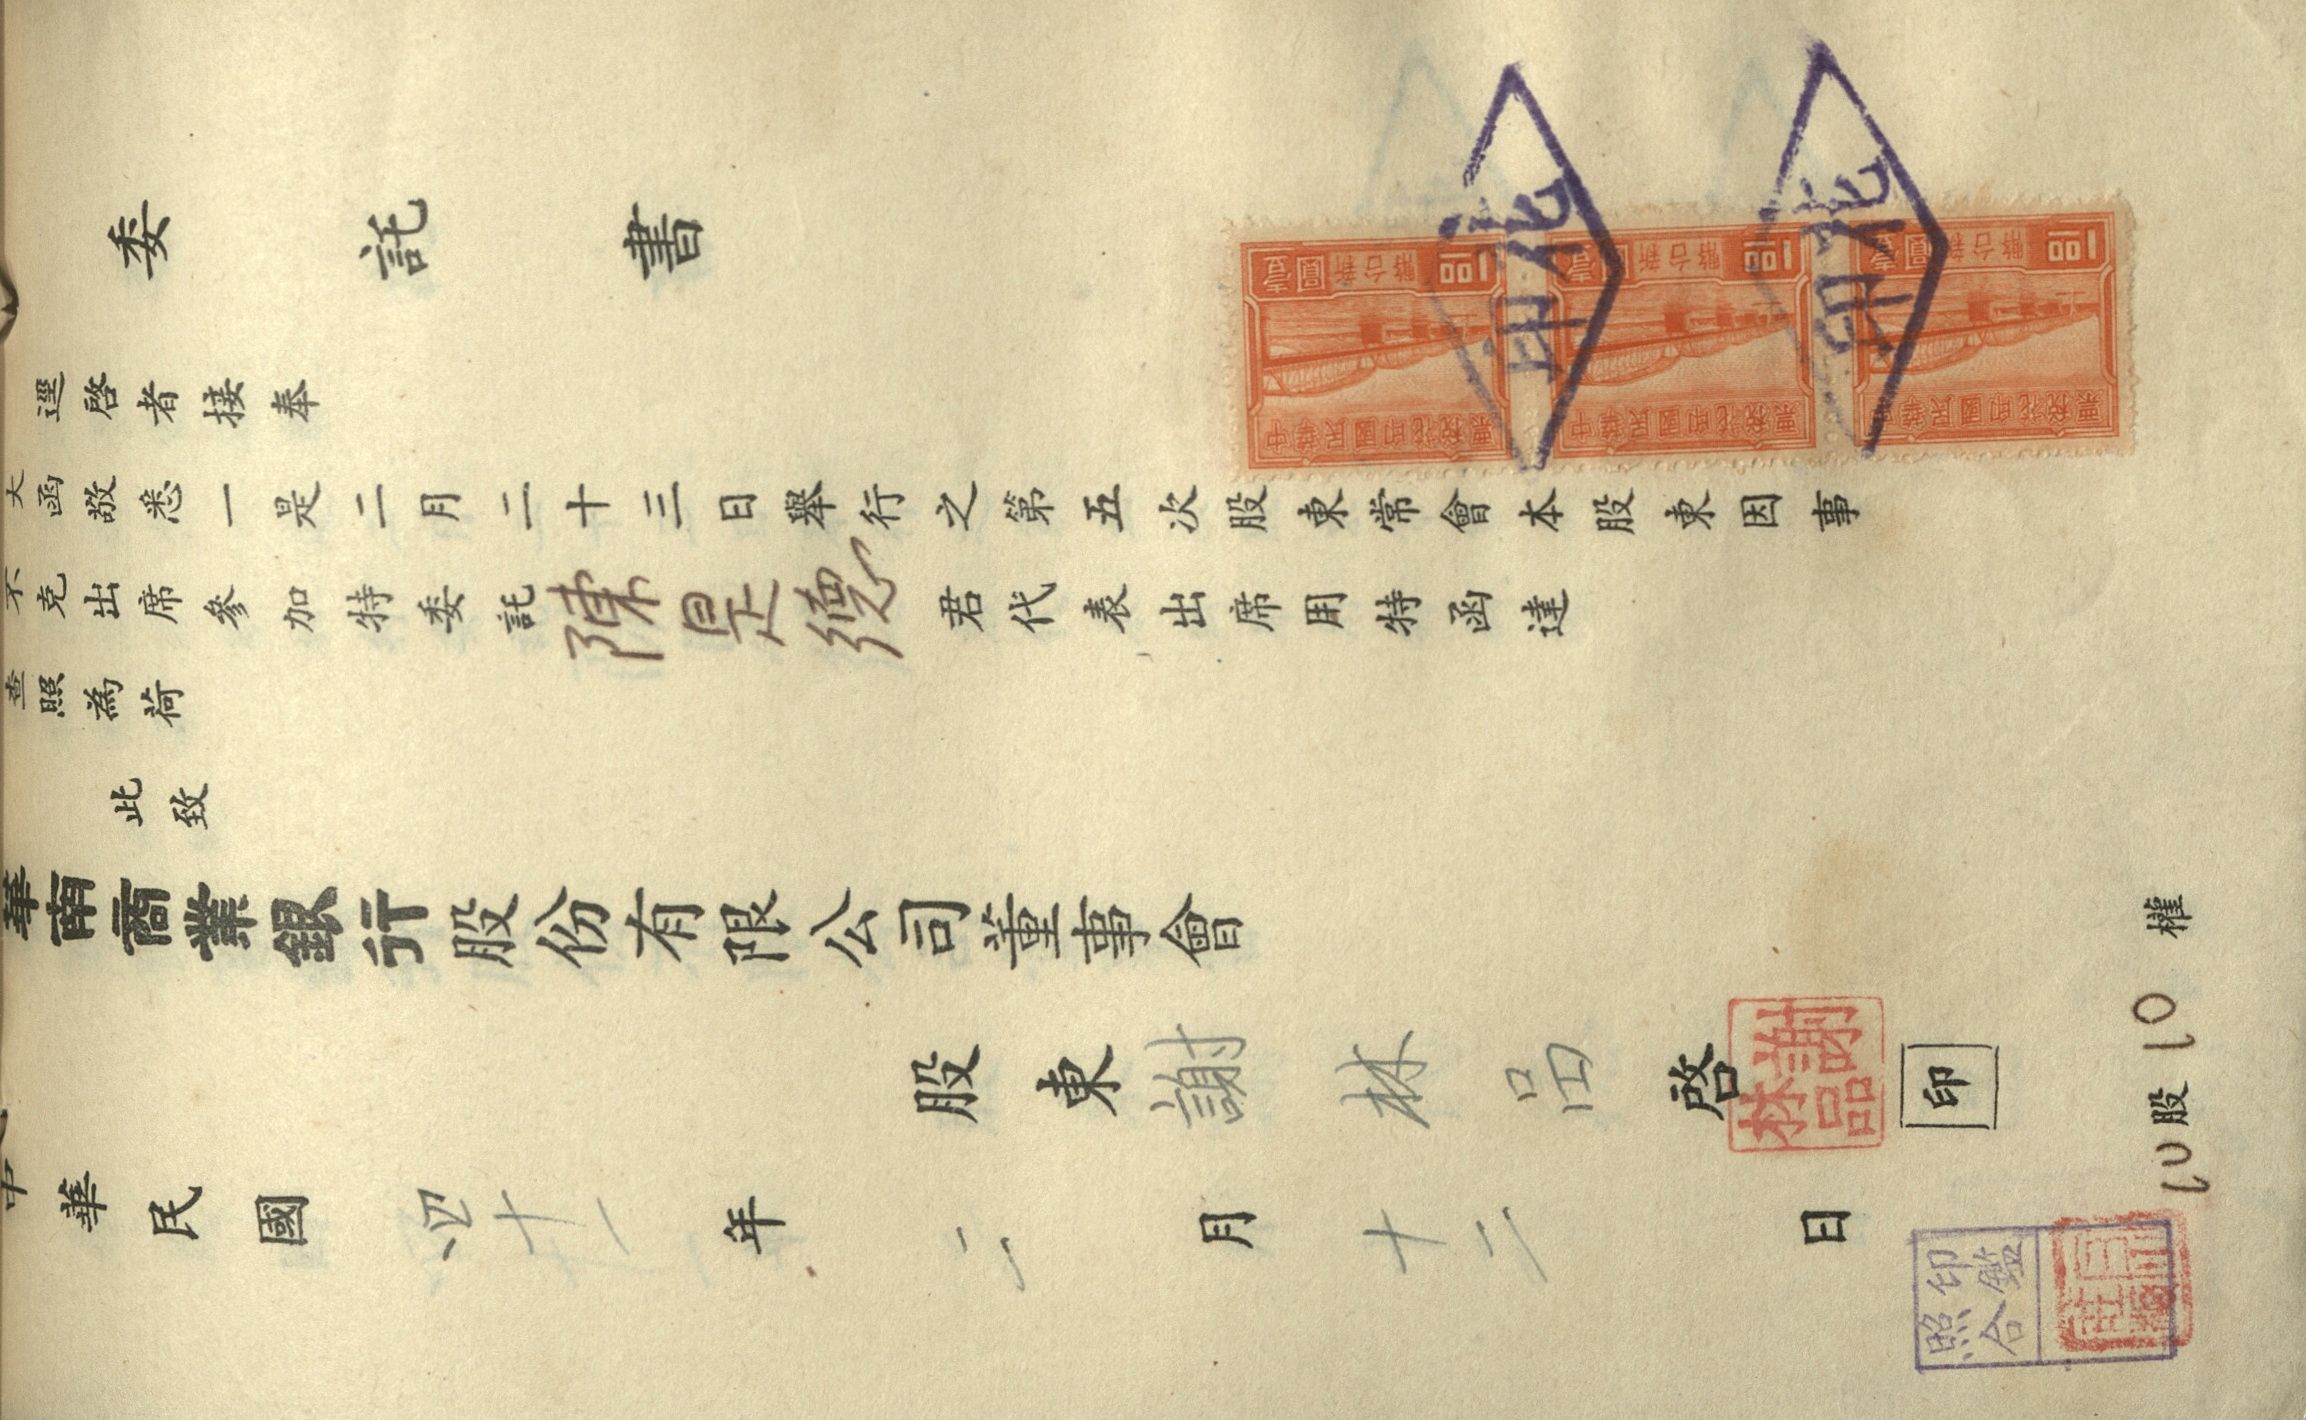 委託書
逕啓者接奉
大函敬悉一是二月二十三日舉行之第五次股東常會本股東因事
不克出席參加特委託陳是德君代表出席用特函達
查照為荷
此致
華南商業銀行股份有限公司董事會
股東謝林呂啓
印
謝林呂
中華民國四十一年二月十二日
10股10權
印鑑照合
中華民國印花稅票
新台幣
壹圓
中華民國印花稅票
新台幣
壹圓
中華民國印花稅票
新台幣
壹圓
印花
印花